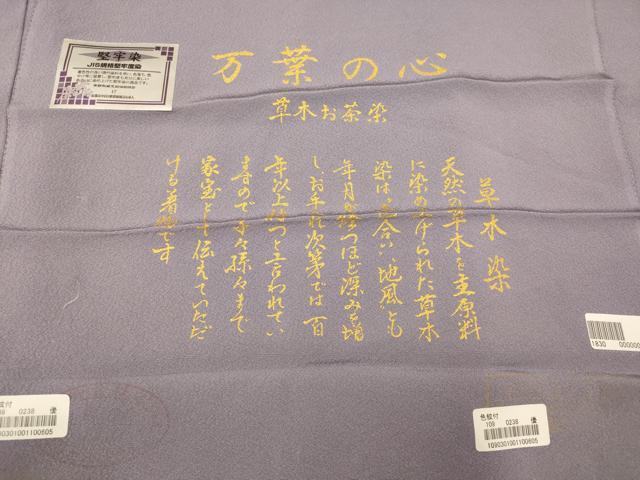 堅牢染
JIS規格堅牢度染
万葉の心
草木お茶染
草木染
天然の草木を主原料
に染め上げられた草木
染は色合い、地風とも
年月が経つほど深みを増
し、お手れ次第では百
年以上持つと言われてい
ますので子々孫々まで
家宝として伝えていただ
ける着物です
1830 000000
色紋付
0238 優
090301001100605
色紋付
109 0238 優
1090301001100605